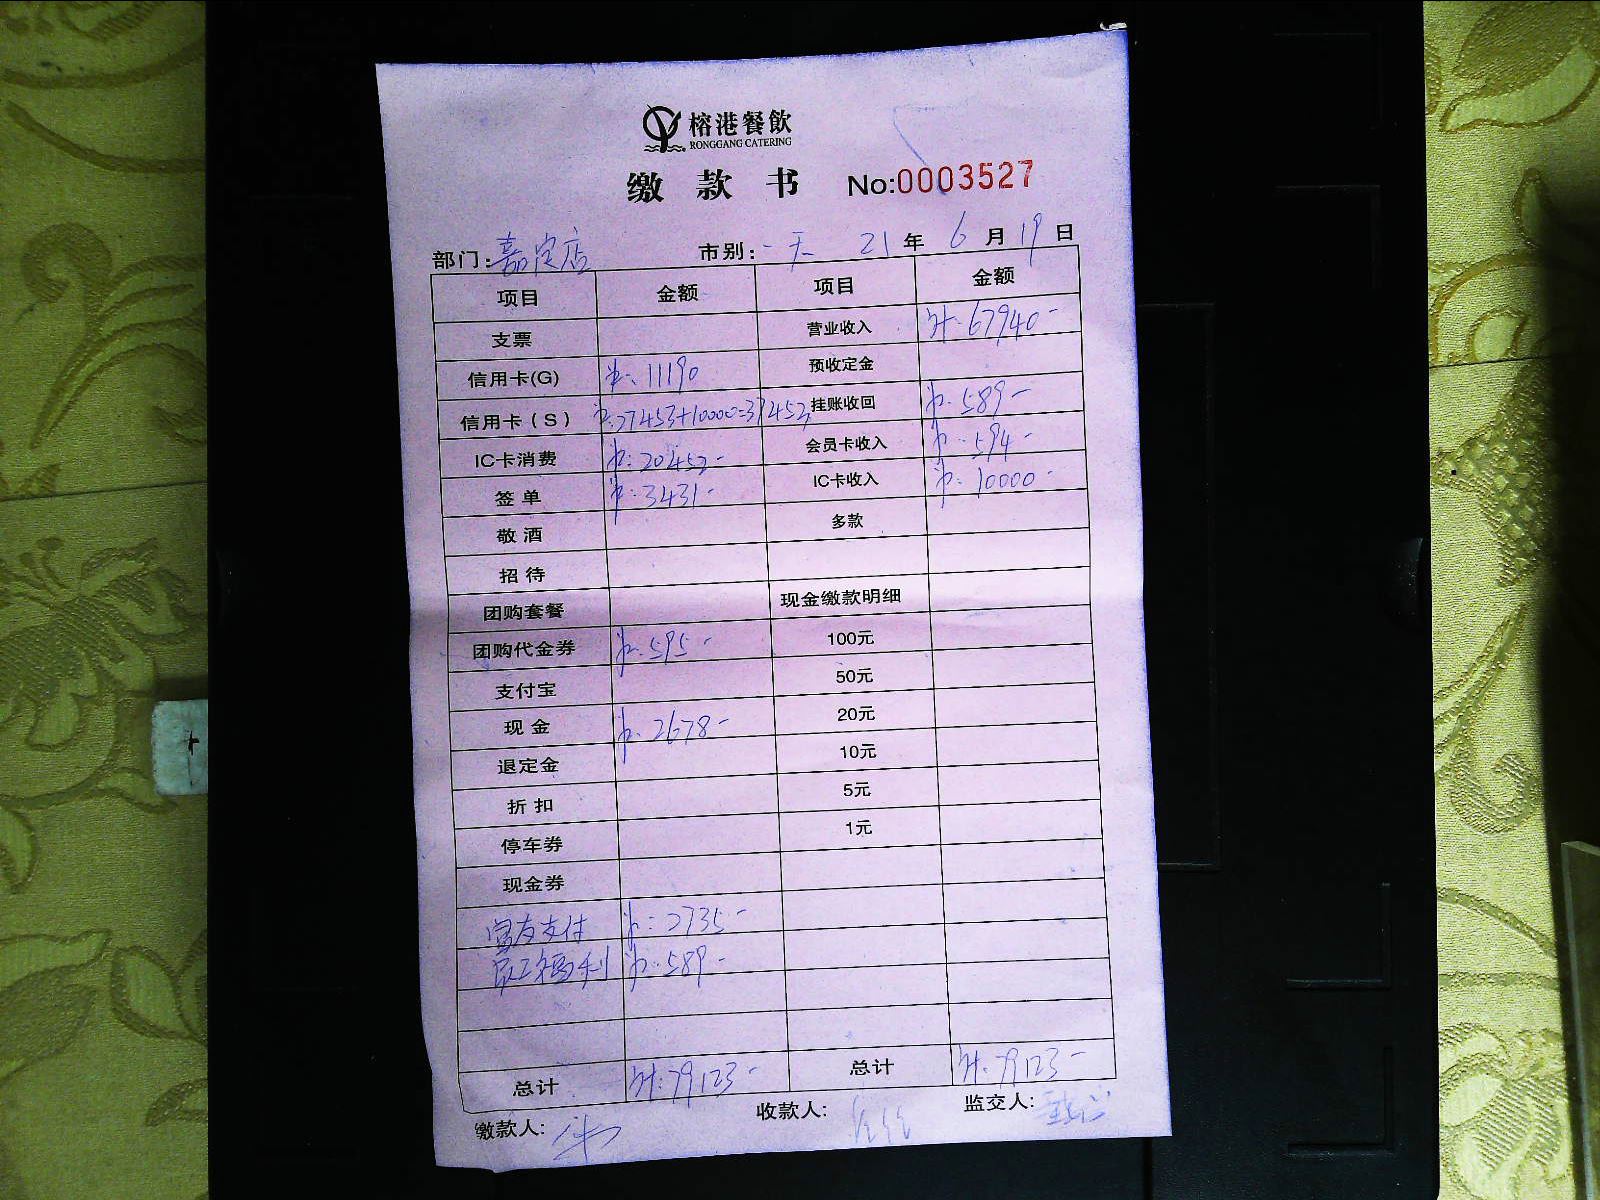 榕港餐飲
RONGGANG CATERING
缴款书 No:0003527
部门:嘉定店 市别:一天 21年6月19日
项目 金额 项目 金额
支票 营业收入 计:67940-
信用卡(G) 中:11190 预收定金
信用卡(S) 中:27453+10000=37453 挂账收回 中:589-
IC卡消费 中:20452- 会员卡收入 中:594-
签单 中:3431- IC卡收入 中:10000-
敬酒 多款
招待
团购套餐 现金缴款明细
团购代金券 中:595- 100元
支付宝 50元
现金 中:2678- 20元
退定金 10元
折扣 5元
停车券 1元
现金券
富友支付 中:2735-
员工福利 中:589-
总计 计:79123- 总计 计:79123-
缴款人: 收款人: 监交人: